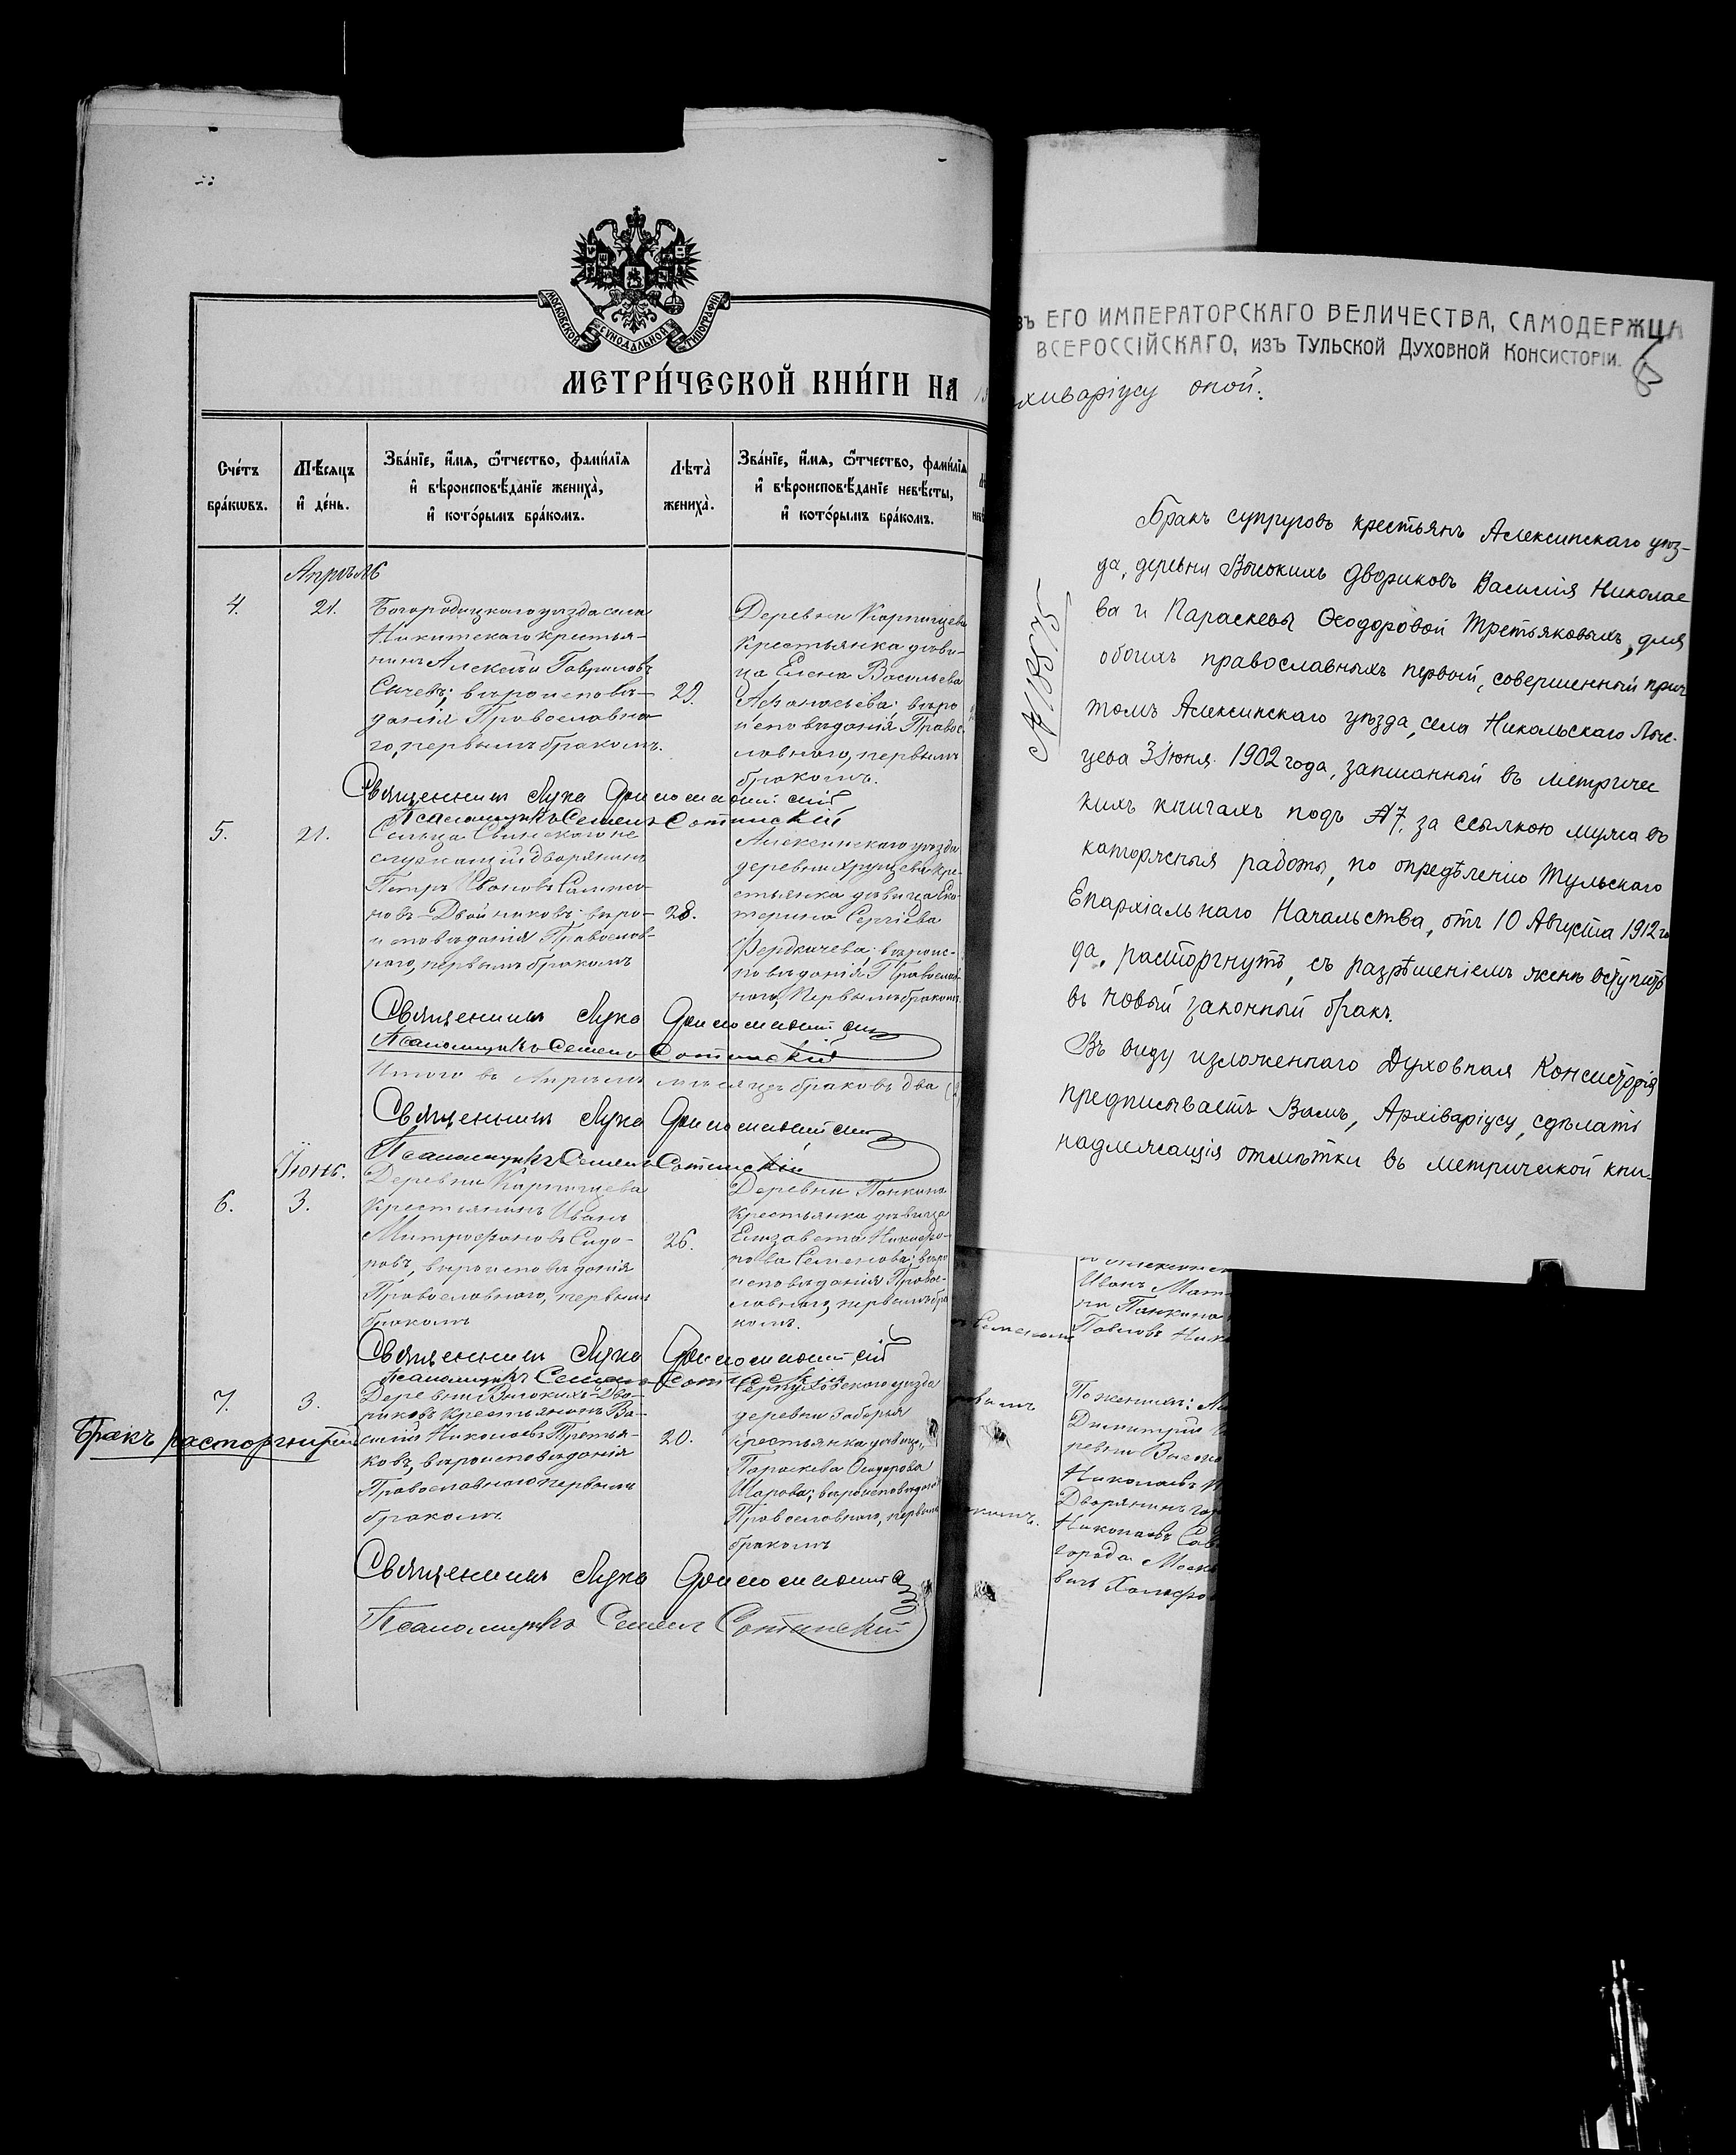 МОСКОВСКОЙ СѴНОДАЛЬНОЙ ТИПОГРАФІИ
МЕТРИ́ЧЕСКОЙ КНИ́ГИ НА
Сче́тъ бра́кѡвъ.
Мѣ́сяцъ и҆ де́нь.
Зва́нїе, и҆́мѧ, ѻ҆́тчество, фами́лїѧ
и҆ вѣроисповѣ́данїе жениха̀,
и҆ кото́рымъ бра́комъ.
Лѣта̀ жениха̀.
Зва́нїе, и҆́мѧ, ѻ҆́тчество, фами́лїѧ
и҆ вѣроисповѣ́данїе невѣ́сты,
и҆ кото́рымъ бра́комъ.
Апрѣль
4.
21.
Богородицкаго уѣзда села
Никитскаго крестья-
нинъ Алексѣй Гавриловъ
Сычевъ; вѣроисповѣ-
данія Православна-
го, первымъ бракомъ.
29.
Деревни Карпищева
крестьянка дѣви-
ца Елена Васильева
Афанасьева; вѣро
исповѣданія Правос-
лавнаго, первымъ
бракомъ.
Священникъ Лука
Псаломщикъ Семенъ Сотинскій
5.
21.
Сельца Свинскаго не
служащій дворянинъ
Петръ Ивановъ Сампсо-
новъ-Двойниковъ; вѣро-
исповѣданія Православ-
наго, первымъ бракомъ
28.
Алексинскаго уѣзда
деревни Хрущевки кре-
стьянка дѣвица Ека-
терина Сергіева
вѣроис-
повѣданія Православ-
наго, первымъ бракомъ.
Священникъ Лука
Псаломщикъ Семенъ Сотинскій
Итого въ Апрѣлѣ мѣсяцѣ браковъ два (2
Священникъ Лука
Псаломщикъ Семенъ Сотинскій
Іюнь.
6.
3.
Деревни Карпищева
крестьянинъ Иванъ
Митрофановъ Сидо-
ровъ, вѣроисповѣданія
Православнаго, первымъ
бракомъ
26.
Деревни Панкина
крестьянка дѣвица
Елизавета Никифо-
рова Семенова; вѣро
исповѣданія Правос-
лавнаго, первымъ бра
комъ.
Священникъ Лука
Псаломщикъ Семенъ Сотинскій
7.
3.
Бракъ расторгнутъ
Деревни Высокихъ-Дво-
риковъ крестьянинъ Ва-
силій Николаевъ Третья-
ковъ, вѣроисповѣданія
Православнаго первымъ
бракомъ.
20.
Серпуховскаго уѣзда
деревни Заборья
крестьянка дѣвица,
Параскева Ѳеодорова
Шарова; вѣроисповѣданія
Православнаго, первымъ
бракомъ
Священникъ Лука
Псаломщикъ Семенъ Сотинскій
ЗЪ ЕГО ИМПЕРАТОРСКАГО ВЕЛИЧЕСТВА, САМОДЕРЖЦА
ВСЕРОССІЙСКАГО, ИЗЪ ТУЛЬСКОЙ ДУХОВНОЙ КОНСИСТОРІИ.
хиваріусу оной.
№ 18575
Бракъ супруговъ крестьянъ Алексинскаго уѣз-
да, деревни Высокихъ Двориковъ Василія Николае
ва и Параскевы Ѳеодоровой Третьяковыхъ, для
обоихъ православныхъ первый, совершенный прич
томъ Алексинскаго уѣзда, села Никольскаго Лыс-
цева 3 Іюня 1902 года, записанный въ метричес
кихъ книгахъ подъ №7, за ссылкою мужа въ
каторжныя работы, по опредѣленію Тульскаго
Епархіальнаго Начальства, отъ 10 Августа 1912 го
да, расторгнутъ, съ разрѣшеніемъ женѣ вступить
въ новый законный бракъ.
Въ виду изложеннаго Духовная Консисторія
предписываетъ Вамъ, Архиваріусу, сдѣлать
надлежащія отмѣтки въ метрической кни-
Иванъ Мат
ни Панкина
Павловъ Ник
По женихѣ:
Дмитрій
ревни Высок
Николаевъ
Дворянинъ гор
Николаевъ Сав
города Моск
вичъ
комъ.